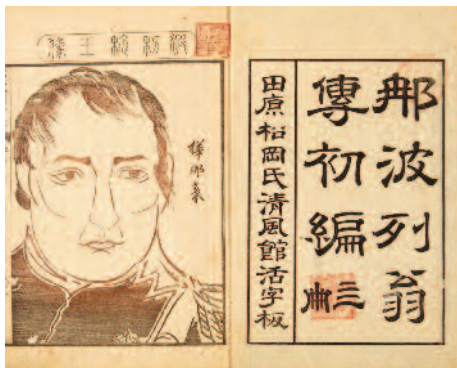 那波列翁
傳初編 三冊
田原松岡氏清風館活字板